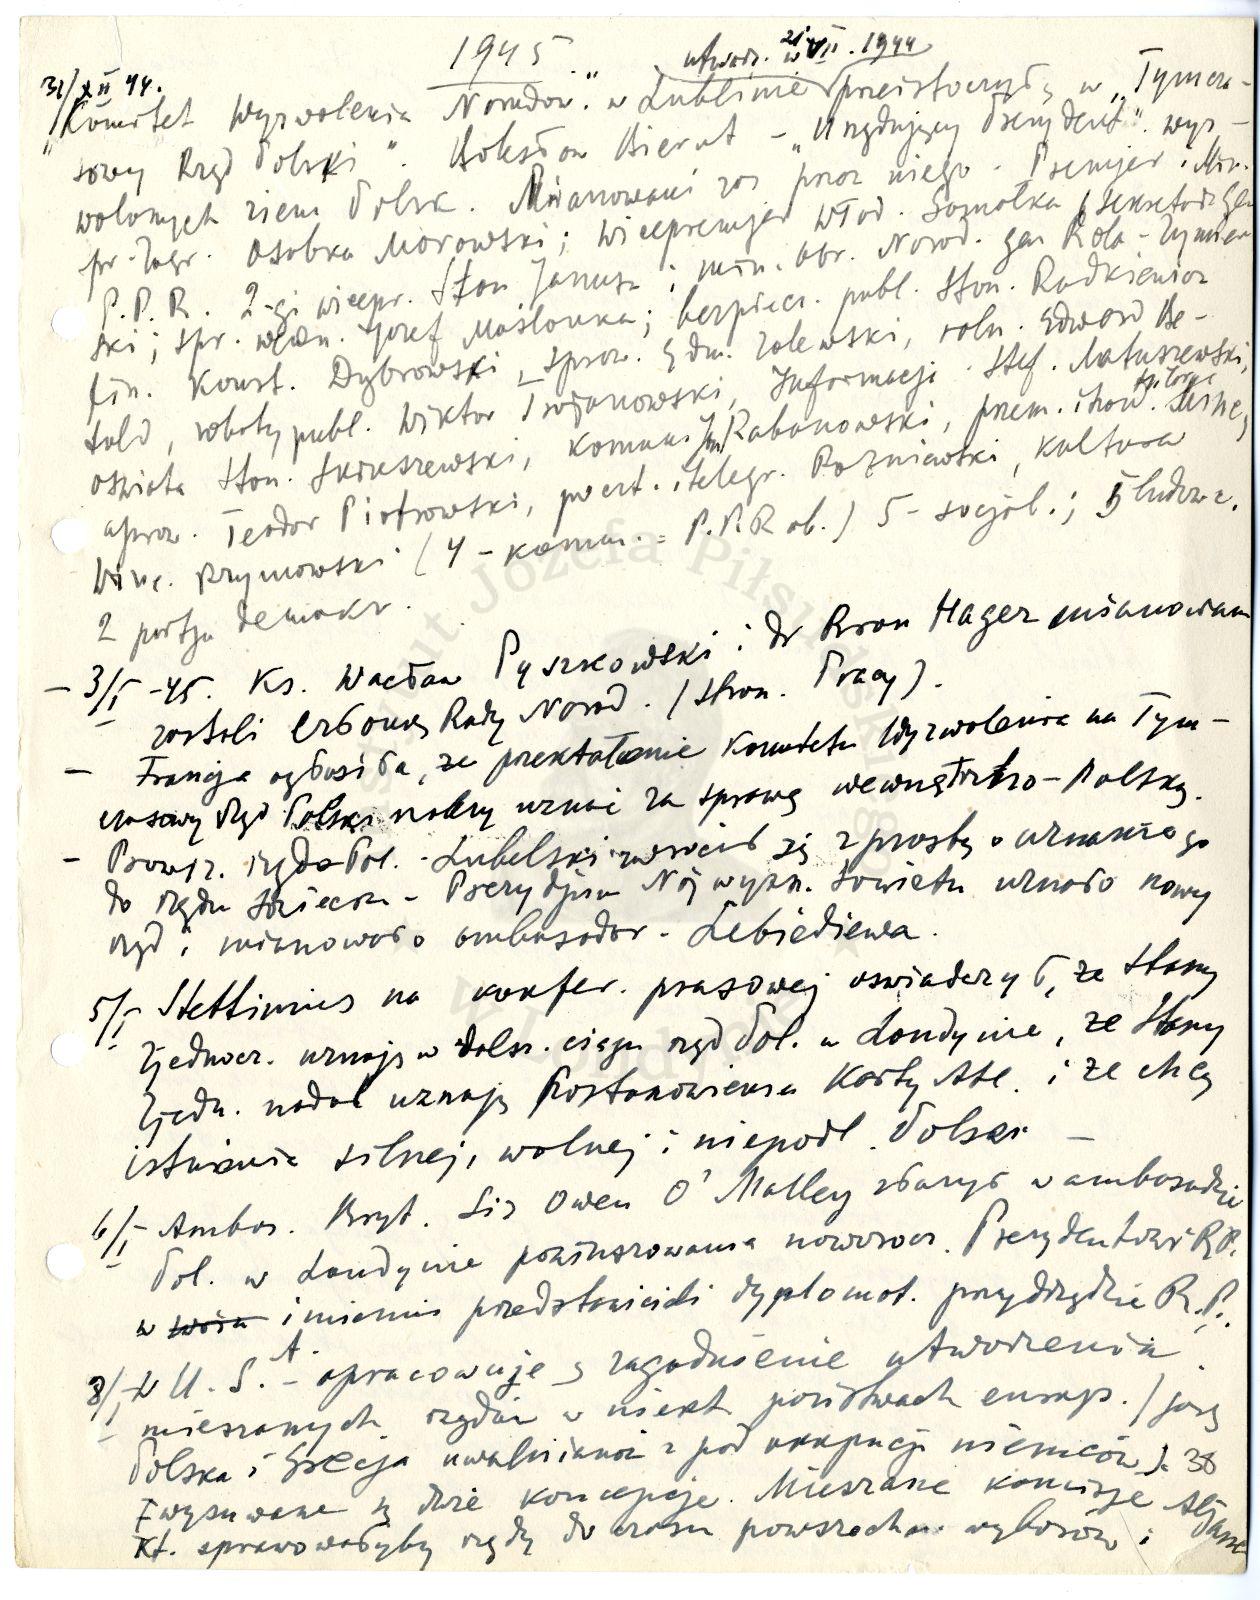 1945
utworz. w 21/VII. 1944
31/XII 44.
"Komitet Wyzwolenia Narodow." w Lublinie przeistoczył się w „Tymcza-
sowy Rząd Polski". Bolesław Bierut – „Urzędujący Prezydent" wyz-
wolonych ziem Polsk. Mianowani zos przez niego - Premjer i Min.
spr. Zagr. Osobka Morawski; wicepremjer Wład. Gomółka (Sekretarz Gen
P.P.R. 2-gi wicepr. Stan Janusz; min. obr. Narod. gen Rola-Żymier
ski; spr. wewn. Jozef Maślanka; bezpiecz. publ. Stan. Radkiewicz
fin. Konst. Dąbrowski, spraw. Edm. Zalewski, roln. Edward Be-
told, roboty publ. Wiktor Trojanowski, Informacji Stef. Matuszewski,
oświata Stan. Skrzeszewski, Komuni Jan Rabanowski, przem. i handl. Hilary Minc,
aprow. Teodor Piotrowski, poczt. i telegr. , Kultura
Winc. Rzymowski (4 – komun. = P.P.R ob.) 5 – socjal.; 5 ludowc.
2 partja demokr.
– 3/I -45. Ks. Wacław Pyszkowski i dr Bron Hager mianowani
zostali członk. Rady Narod. (Stron. Pracy).
– Francja ogłosiła, że przekształcenie Komitetu Wyzwolenia na Tym-
czasowy Rząd Polski należy uznać za sprawę wewnętrzno-Polską.
– Prowiz. rząd Pol. - Lubelski zwrócił się z prośbą o uznanie go
do rządu Sowieck. - Prezydjum Najwyższ. Sowietu uznało nowy
rząd i mianowało ambasador - Lebiediewa.
5/I Stettinius na konfer. prasowej oświadczył, że Stany
Zjednocz. uznają w dalsz. ciągu rząd Pol. w Londynie, że Stany
Zjedn. nadal uznają Postanowienia Karty Atl. i że chcą
istnienia silnej, wolnej i niepodl. Polski –
6/I – Ambas. Bryt. Sir Owen O'Malley złożył w ambasadzie
Pol. w Londynie powinszowania noworocz. Prezydentowi R.P.
w imieniu przedstawicieli dyplomat. przy Rządzie R.P.
8/I W U.S.A. – opracowuje się zagadnienie utworzenia
mieszanych rządów w niekt państwach europ. (jak
Polska i Grecja uwalnianie z pod okupacji niemców).
wysuwane są dwie koncepcje. Mieszane komisje Aljanc
kt. sprawowałyby rządy do czasu powszechn. wyborów i